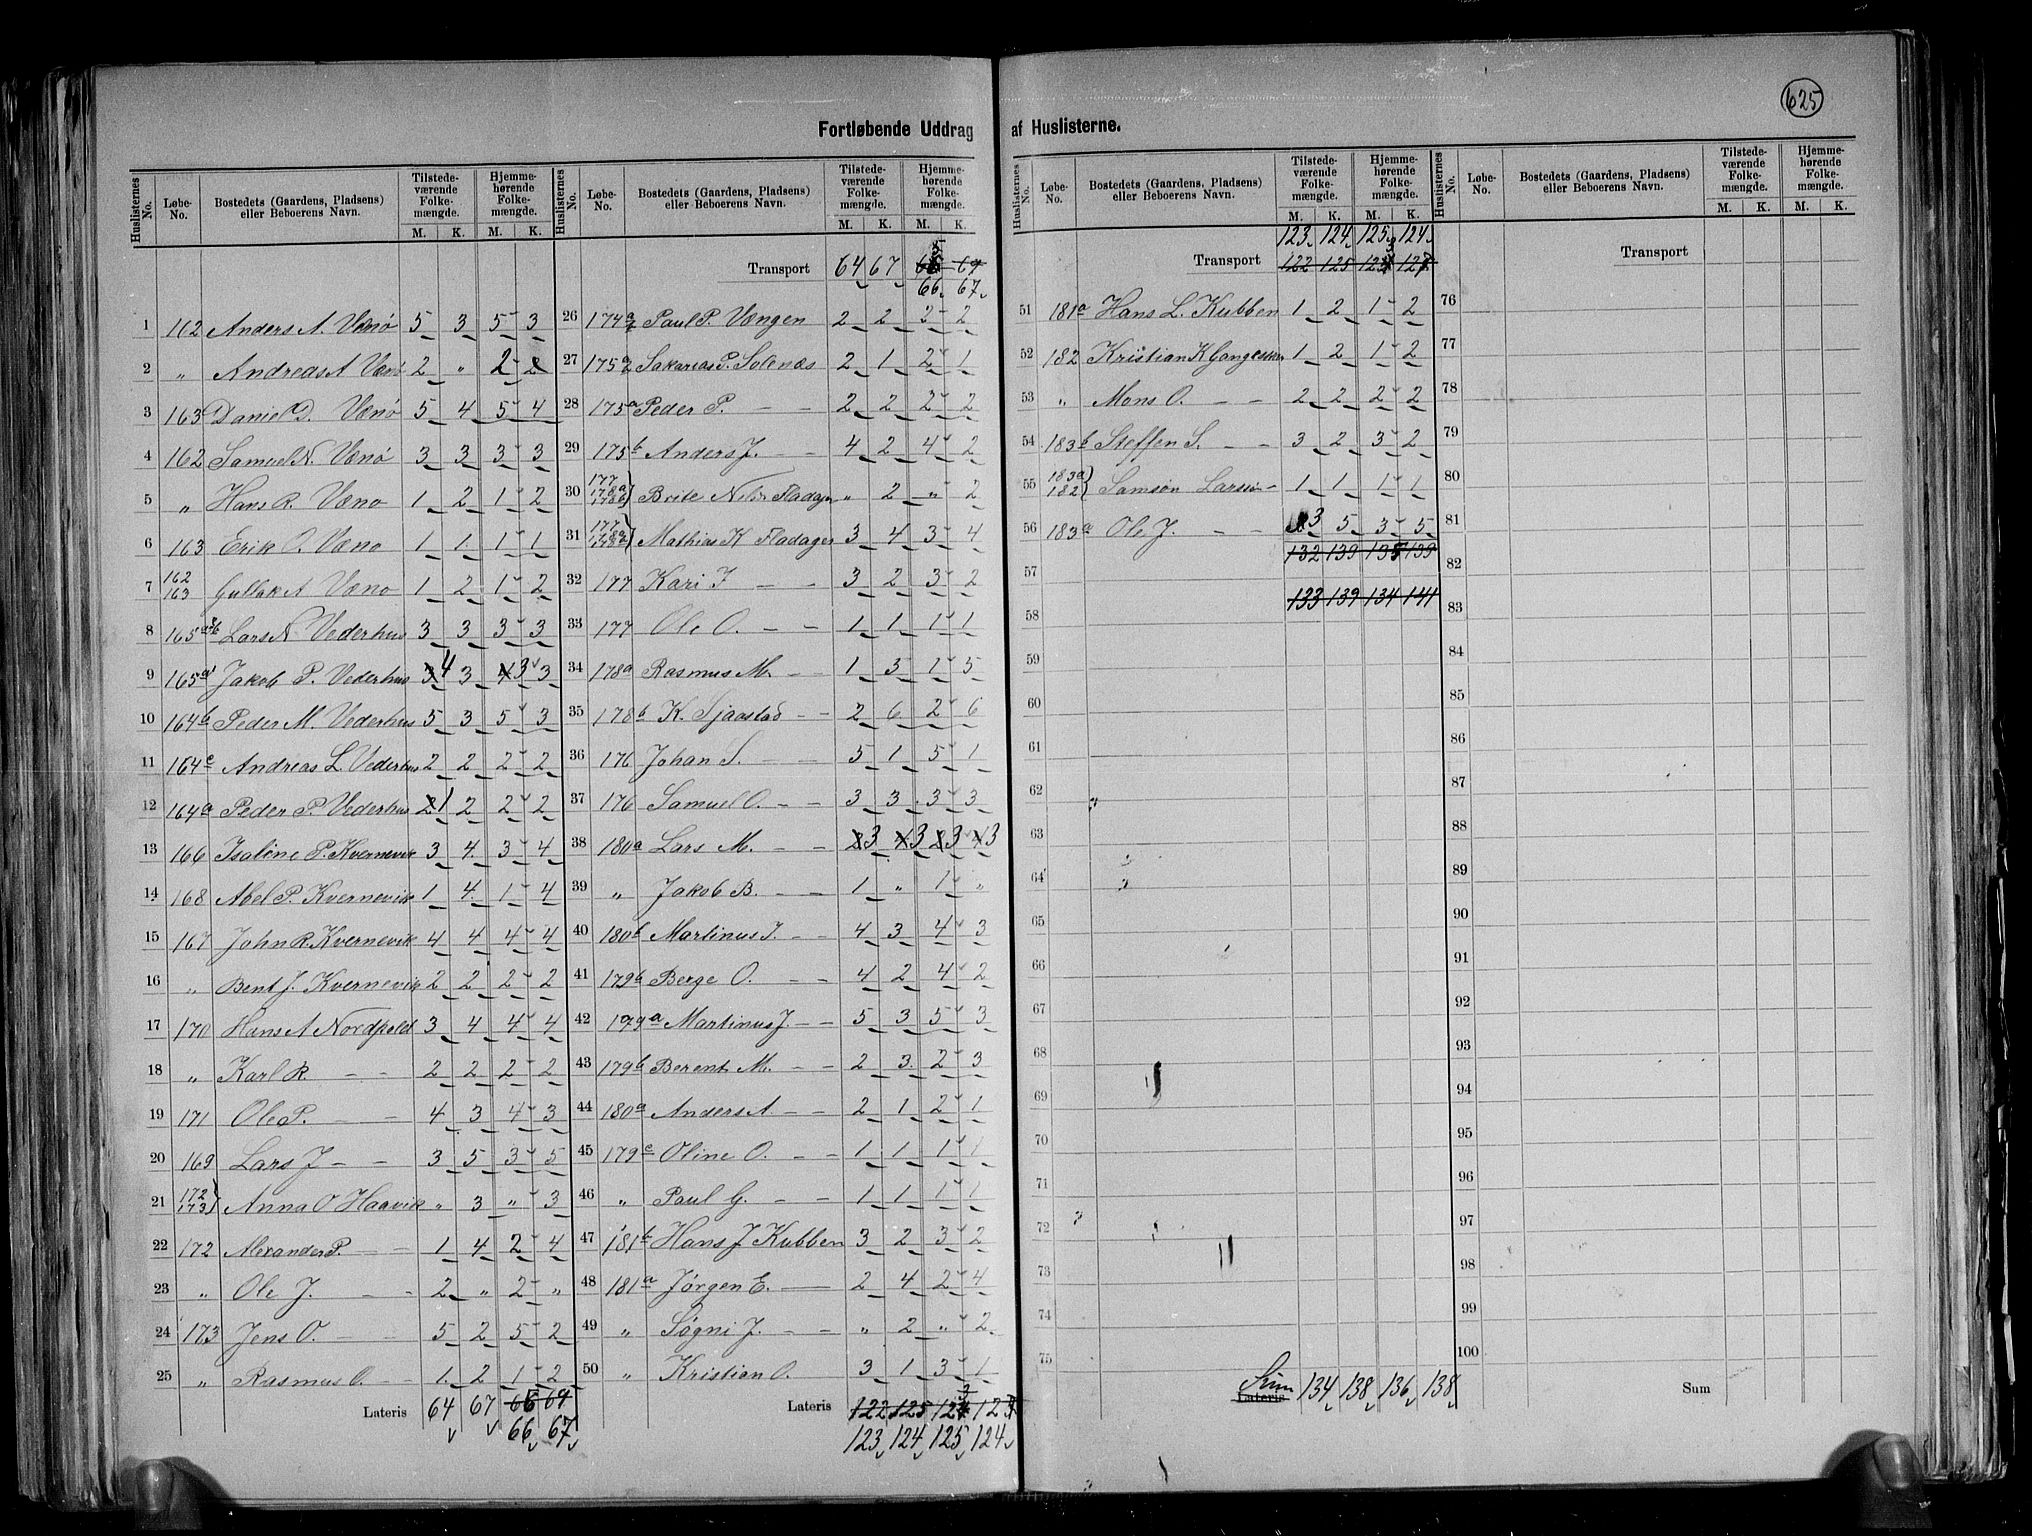 625
Fortløbende Uddrag af Huslisterne.
Huslisternes No. Løbe-No. Bostedets (Gaardens, Pladsens) eller Beboerens Navn. Tilstedeværende Folkemængde. M. K. Hjemmehørende Folkemængde. M. K.
1 162 Anders A. Vænø 5 3 5 3
2 " Andreas A Vænø 2 " 2
3 163 Daniel D. Vænø 5 4 5 4
4 162 Samuel N. Vænø 3 3 3 3
5 " Hans R. Vænø 1 2 1 2
6 163 Erik O. Vænø 1 1 1 1
7 162 163 Gullak A Vænø 1 2 1 2
8 165 Lars N Vederhus 3 3 3 3
9 165a Jakob P. Vederhus 4 3 3 3
10 164b Peder M. Vederhus 5 3 5 3
11 164c Andreas L. Vederhus 2 2 2 2
12 164a Peder P. Vederhus 1 2 2 2
13 166 Isaline P. Kvernevik 3 4 3 4
14 168 Abel P. Kvernevik 1 4 1 4
15 167 John R. Kvernevik 4 4 4 4
16 " Bent J. Kvernevik 2 2 2 2
17 170 Hans A Nordfold 3 4 4 4
18 " Karl R. — — 2 2 2 2
19 171 Ole P. — 4 3 4 3
20 169 Lars J — — 3 5 3 5
21 172 173) Anna O Haavik " 3 " 3
22 172 Alexander P. — 1 4 2 4
23 " Ole J. — - 2 " 2 "
24 173 Jens O. — — 5 2 5 2
25 " Rasmus O. — 1 2 1 2
Lateris 64 67
66 67
Huslisternes No. Løbe-No. Bostedets (Gaardens, Pladsens) eller Beboerens Navn. Tilstedeværende Folkemængde. M. K. Hjemmehørende Folkemængde. M. K.
Transport 64 67
66 67
26 174a Paul P. Vængen 2 2 2 2
27 175a Sakarias P. Solenæs 2 1 2 1
28 175a Peder P. — — 2 2 2 2
29 175b Anders J. — — 4 2 4 2
30 177 178a 178b) Brite Fladager " 2 " 2
31 177 178a) Mathias K Fladager 3 4 3 4
32 177 Kari J — — 3 2 3 2
33 177 Ole O. — — 1 1 1 1
34 178a Rasmus M. — — 1 5 1 5
35 178b K. Sjaastad — — 2 6 2 6
36 176 Johan S. — — 5 1 5 1
37 176 Samuel O. — — 3 3 3 3
38 180a Lars M. — — 3 3 3 3
39 " Jakob B. — — 1 " 1 "
40 180b Martinus J. — — 4 3 4 3
41 179b Berge O. — — 4 2 4 2
42 179a Martinus J. — — 5 3 5 3
43 179b Berent M. — — 2 3 2 3
44 180a Anders A. — — 2 1 2 1
45 179c Oline O. — — 1 1 1 1
46 " Paul G. — — 1 1 1 1
47 181b Hans J Kubben 3 2 3 2
48 181a Jørgen E. — 2 4 2 4
49 " Søgni J. — — " 2 " 2
50 " Kristian O. 3 1 3 1
Lateris 122 125
123 124 125 124
Huslisternes No. Løbe-No. Bostedets (Gaardens, Pladsens) eller Beboerens Navn. Tilstedeværende Folkemængde. M. K. Hjemmehørende Folkemængde. M. K.
123 124 125 124
Transport 122 125
51 181a Hans L. Kubben 1 2 1 2
52 182 Kristian K 1 2 1 2
53 " Mons O. — — 2 2 2 2
54 183b Steffen S. — — 3 2 3 2
55 183a 182) Samson Larsen — 1 1 1 1
56 183a Ole J. — 3 5 3 5
132 139 135 139
57
133 139 134 141
58
59
60
61
62
63
64
65
66
67
68
69
70
71
72
73
74
75
Sum Lateris 134 138 136 138
Huslisternes No. Løbe-No. Bostedets (Gaardens, Pladsens) eller Beboerens Navn. Tilstedeværende Folkemængde. M. K. Hjemmehørende Folkemængde. M. K.
Transport
76
77
78
79
80
81
82
83
84
85
86
87
88
89
90
91
92
93
94
95
96
97
98
99
100
Sum